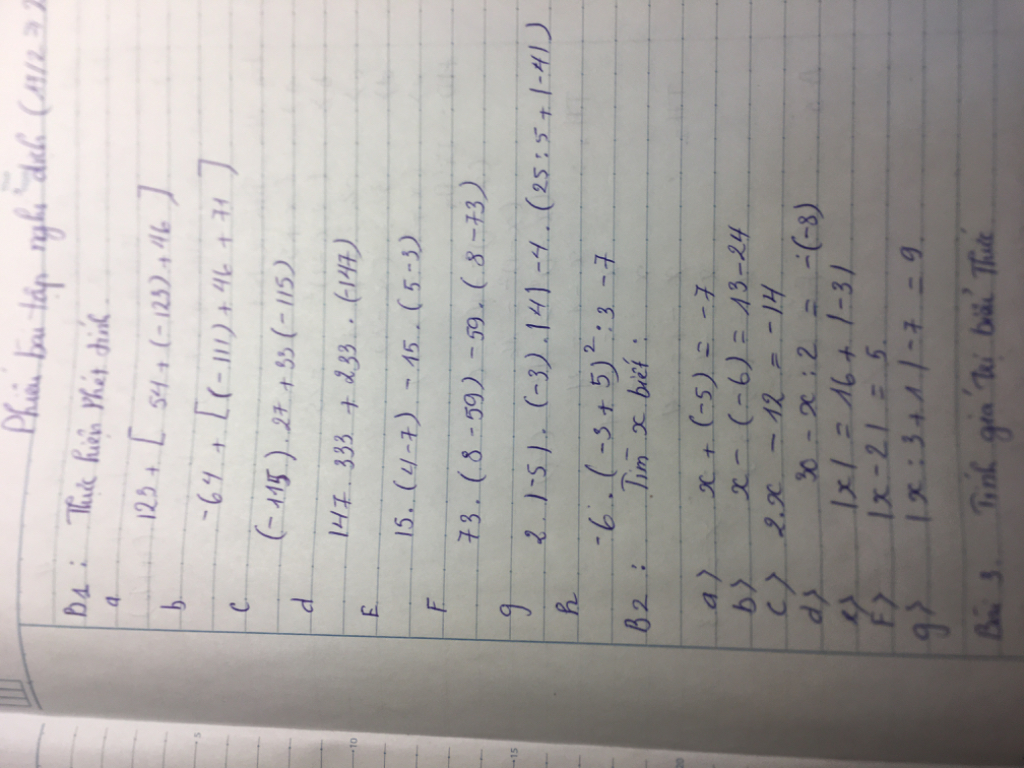 Phiếu bài tập nghỉ dịch (19/2 →2
B1: Thực hiện phép tính.
a
123 + [ 54 + (-123) + 46 ]
b
-64 + [ (-111) + 46 + 71 ]
c
(-115). 27 + 33 (-115)
d
147 333 + 233. (147)
E
15. (4-7) - 15. (5-3)
F
73. (8-59) - 59. (8-73)
g
2. |-5|. (-3). |4| - 4. (25:5 + |-4|)
h
-6. (-3+5)²:3 - 7
B2: Tìm x biết.
a) x + (-5) = -7
b) x - (-6) = 13-24
c) 2x - 12 = -14
d) 30 - x : 2 = -(-8)
e) |x| = 16 + |-3|
F) |x-2| = 5.
g) |x:3+1| - 7 = 9
Bài 3. Tính giá trị biểu thức
5
10
15
20